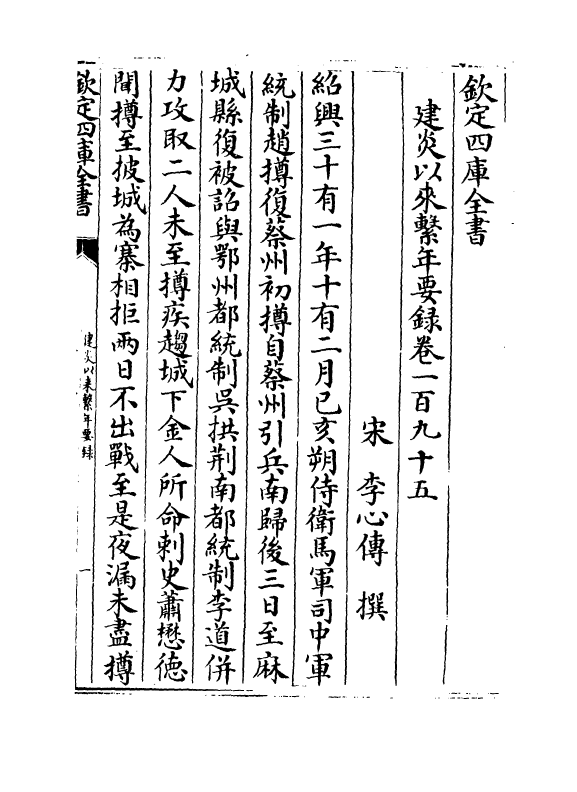 欽定四庫全書
建炎以來繫年要錄卷一百九十五
宋 李心傳 撰
紹興三十有一年十有二月己亥朔侍衛馬軍司中軍
統制趙撙復蔡州初撙自蔡州引兵南歸後三日至麻
城縣復被詔與鄂州都統制吳拱荆南都統制李道併
力攻取二人未至撙疾趨城下金人所命刺史蕭懋德
聞撙至披城為寨相拒兩日不出戰至是夜漏未盡撙
欽定四庫全書
建炎以來繫年要錄
一